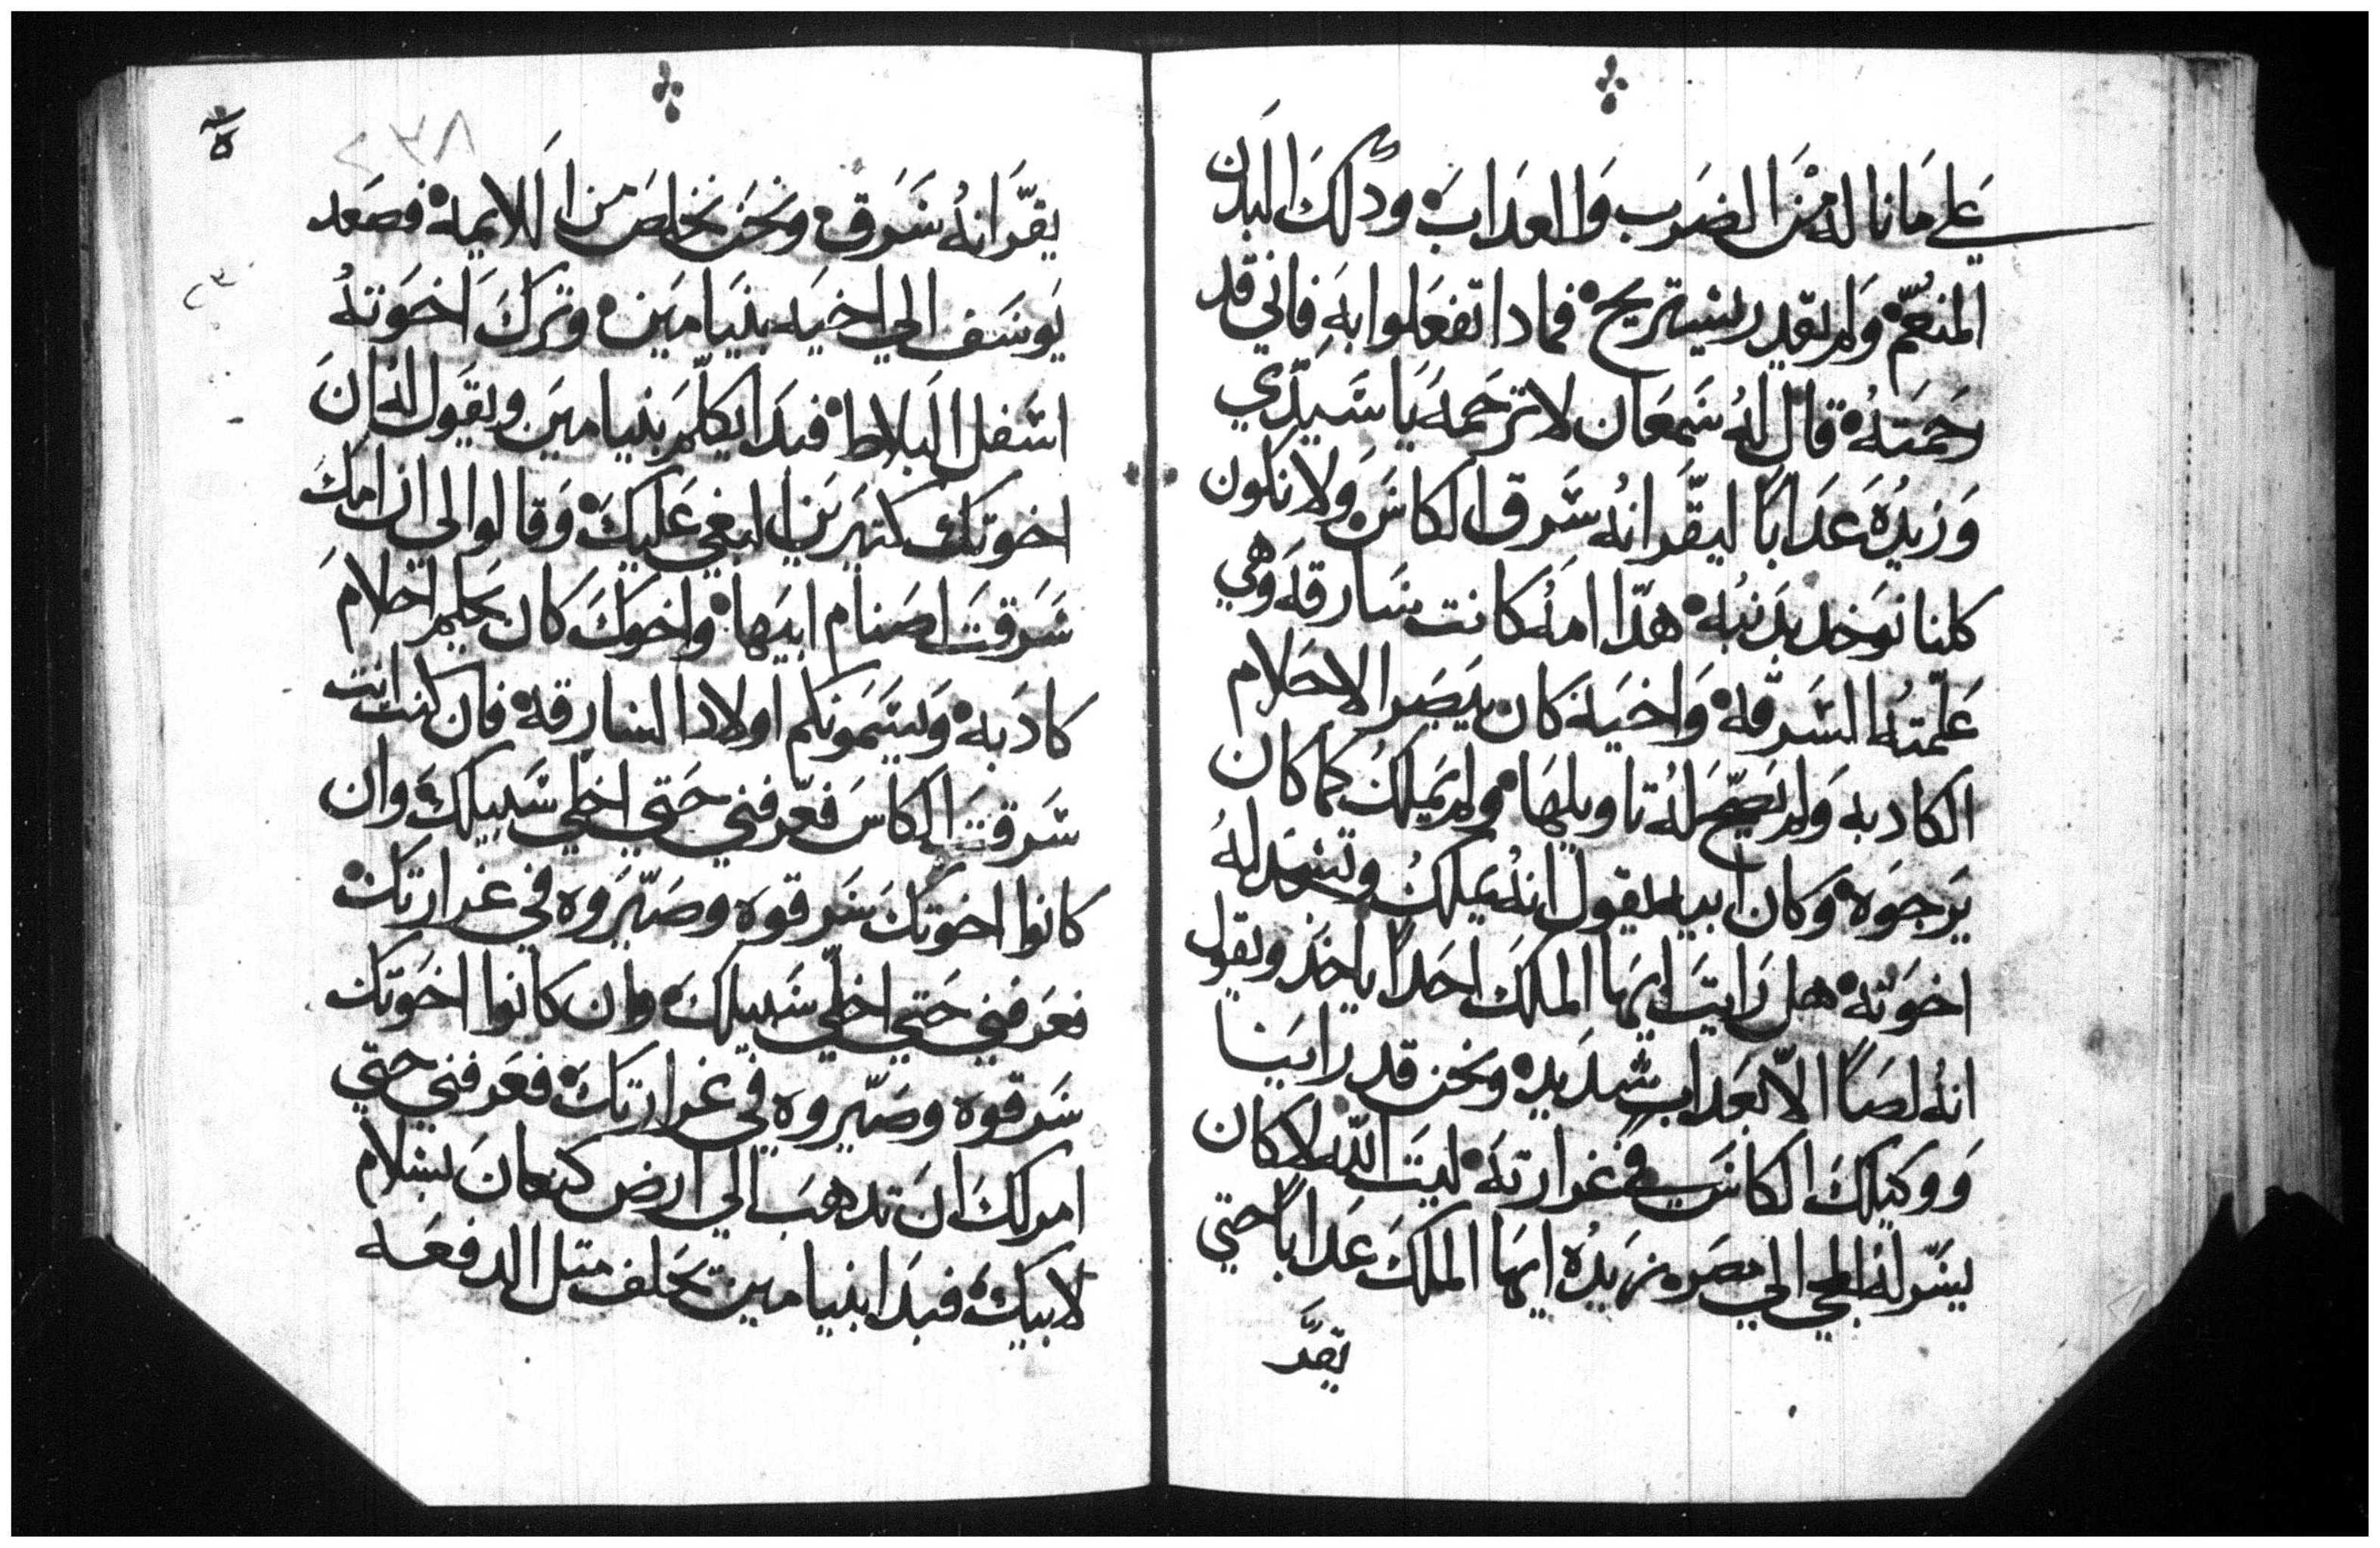 علي ما ناله من الضرب والعداب ودلك البدن
المنعم ولم يقدر يستريح فمادا تفعلوا به فاني قد
رحمته قال له شمعان لا ترحمه يا سيدي
وزيده عدابا ليقر انه سرق الكاس ولا نكون
كلنا نوخد بدنبه هدا امه كانت سارقه وهي
علمته السرقه واخيه كان يبصر الاحلام
الكادبه ولم تصح له تاويلها ولم يملك كما كان
يرجوه وكان ابيه يقول انه يملك وتسجد له
اخوته هل رايت ايها الملك احدا ياخد ويقول
انه لصا الا بعداب شديد ونحن قد راينا
ووكيلك الكاس في غرارته ليت الله لا كان
يسر له المجي الي مصر نريده ايها الملك عدابا حتي
يقر
يقر انه سرق ونحن نخلص من اللايمه فصعد
يوسف الي اخيه بنيامين وترك اخوته
اسفل البلاط فبدا يكلم بنيامين ويقول له ان
اخوتك كتيرين البغي عليك وقالوا لي ان امك
سرقت اصنام ابيها واخوك كان يحلم احلام
كادبه ويسمونكم اولاد السارقه فان كنت انت
سرقت الكاس فعرفني حتي اخلي سبيلك وان
كانوا اخوتك سرقوه وصيروه في غرارتك
فعرفني حتي اخلي سبيلك وان كانوا اخوتك
سرقوه وصيروه في غرارتك فعرفني حتي
امر لك ان تدهب الي ارض كنعان بسلام
لابيك فبدا بنيامين تحلف متل الدفعه